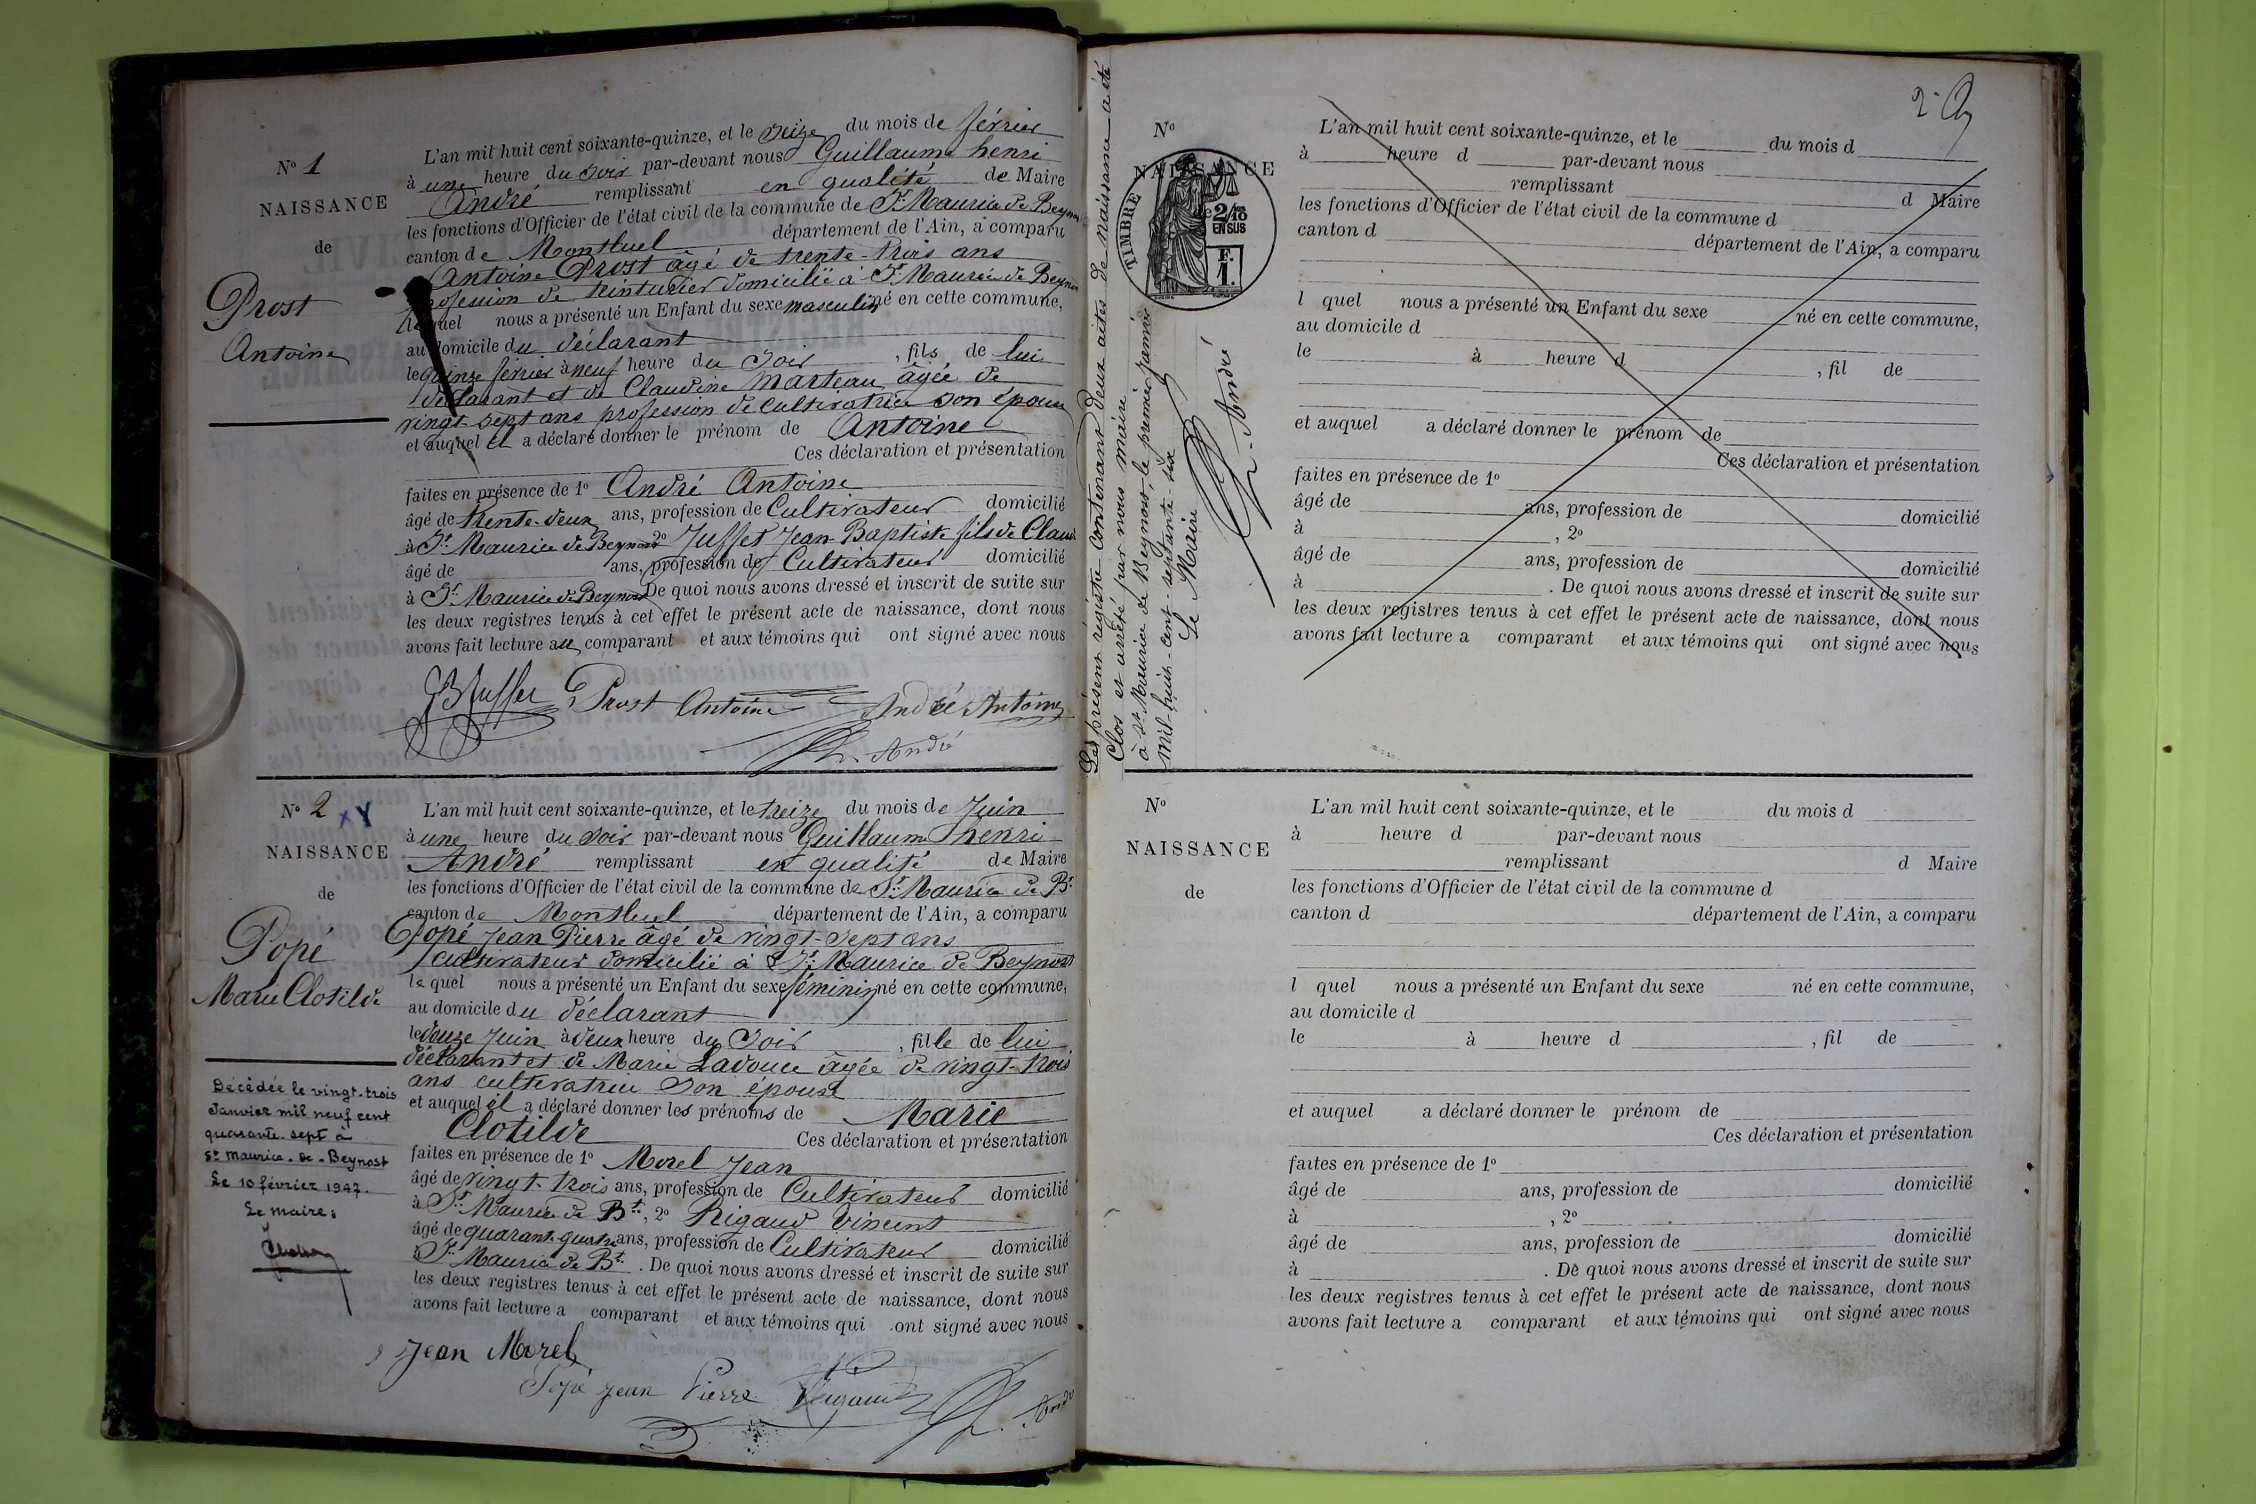 N° 1
NAISSANCE
de
Prost
Antoine
L'an mil huit cent soixante-quinze, et le seize du mois de février
à une heure du soir par-devant nous Guillaume henri
André remplissant en qualité de Maire
les fonctions d'Officier de l'état civil de la commune de St Maurice de Beynost
canton de Montluel département de l'Ain, a comparu
Antoine Prost âgé de trente-trois ans
profession de teinturier domicilié à St Maurice de Beynost
lequel nous a présenté un Enfant du sexe masculin né en cette commune,
au domicile du déclarant
le quinze février à neuf heure du soir , fils de lui
déclarant et de Claudine Marteau âgée de
vingt-sept ans profession de cultivatrice son épouse
et auquel il a déclaré donner le prénom de Antoine
Ces déclaration et présentation
faites en présence de 1° André Antoine
âgé de trente-deux ans, profession de Cultivateur domicilié
à St Maurice de Beynost 2° Juffet Jean Baptiste fils de Claude
âgé de ans, profession de Cultivateur domicilié
à St Maurice de Beynost De quoi nous avons dressé et inscrit de suite sur
les deux registres tenus à cet effet le présent acte de naissance, dont nous
avons fait lecture au comparant et aux témoins qui ont signé avec nous
JB Juffet Prost Antoine André Antoine
h. André
N° 2 x y
NAISSANCE
de
Popé
Marie Clotilde
L'an mil huit cent soixante-quinze, et le treize du mois de Juin
à une heure du soir par-devant nous Guillaume henri
André remplissant en qualité de Maire
les fonctions d'Officier de l'état civil de la commune de St Maurice de Bt
canton de Montluel département de l'Ain, a comparu
Popé Jean Pierre âgé de vingt-sept ans
cultivateur domicilié à St Maurice de Beynost
le quel nous a présenté un Enfant du sexe féminin né en cette commune,
au domicile du déclarant
le douze Juin à deux heure du soir , fille de lui
déclarant et de Marie Ladouce âgée de vingt-trois
ans cultivatrice son épouse
et auquel il a déclaré donner les prénoms de Marie
Clotilde Ces déclaration et présentation
faites en présence de 1° Morel Jean
âgé de vingt-trois ans, profession de Cultivateur domicilié
à St Maurice de Bt, 2° Rigaud Vincent
âgé de quarant-quatre ans, profession de Cultivateur domicilié
à St Maurice de Bt. De quoi nous avons dressé et inscrit de suite sur
les deux registres tenus à cet effet le présent acte de naissance, dont nous
avons fait lecture a comparant et aux témoins qui ont signé avec nous
Décédée le vingt-trois
Janvier mil neuf cent
quarante-sept à
St Maurice-de-Beynost
Le 10 février 1947.
Le maire:
Jean Morel
Popé Jean Pierre Rigaud h. André
Le présent registre contenant deux actes de naissance a été
Clos et arrêté par nous maire
à St Maurice de Beynost, le premier Janvier
mil-huit-cent-septante-six
Le Maire
h. André
2
N°
NAISSANCE
de
TIMBRE
2/10
EN SUS
F.
1.
L'an mil huit cent soixante-quinze, et le du mois d
à heure d par-devant nous
remplissant d Maire
les fonctions d'Officier de l'état civil de la commune d
canton d département de l'Ain, a comparu
l quel nous a présenté un Enfant du sexe né en cette commune,
au domicile d
le à heure d , fil de
et auquel a déclaré donner le prénom de
Ces déclaration et présentation
faites en présence de 1°
âgé de ans, profession de domicilié
à , 2°
âgé de ans, profession de domicilié
à . De quoi nous avons dressé et inscrit de suite sur
les deux registres tenus à cet effet le présent acte de naissance, dont nous
avons fait lecture a comparant et aux témoins qui ont signé avec nous
N°
NAISSANCE
de
L'an mil huit cent soixante-quinze, et le du mois d
à heure d par-devant nous
remplissant d Maire
les fonctions d'Officier de l'état civil de la commune d
canton d département de l'Ain, a comparu
l quel nous a présenté un Enfant du sexe né en cette commune,
au domicile d
le à heure d , fil de
et auquel a déclaré donner le prénom de
Ces déclaration et présentation
faites en présence de 1°
âgé de ans, profession de domicilié
à , 2°
âgé de ans, profession de domicilié
à . De quoi nous avons dressé et inscrit de suite sur
les deux registres tenus à cet effet le présent acte de naissance, dont nous
avons fait lecture a comparant et aux témoins qui ont signé avec nous